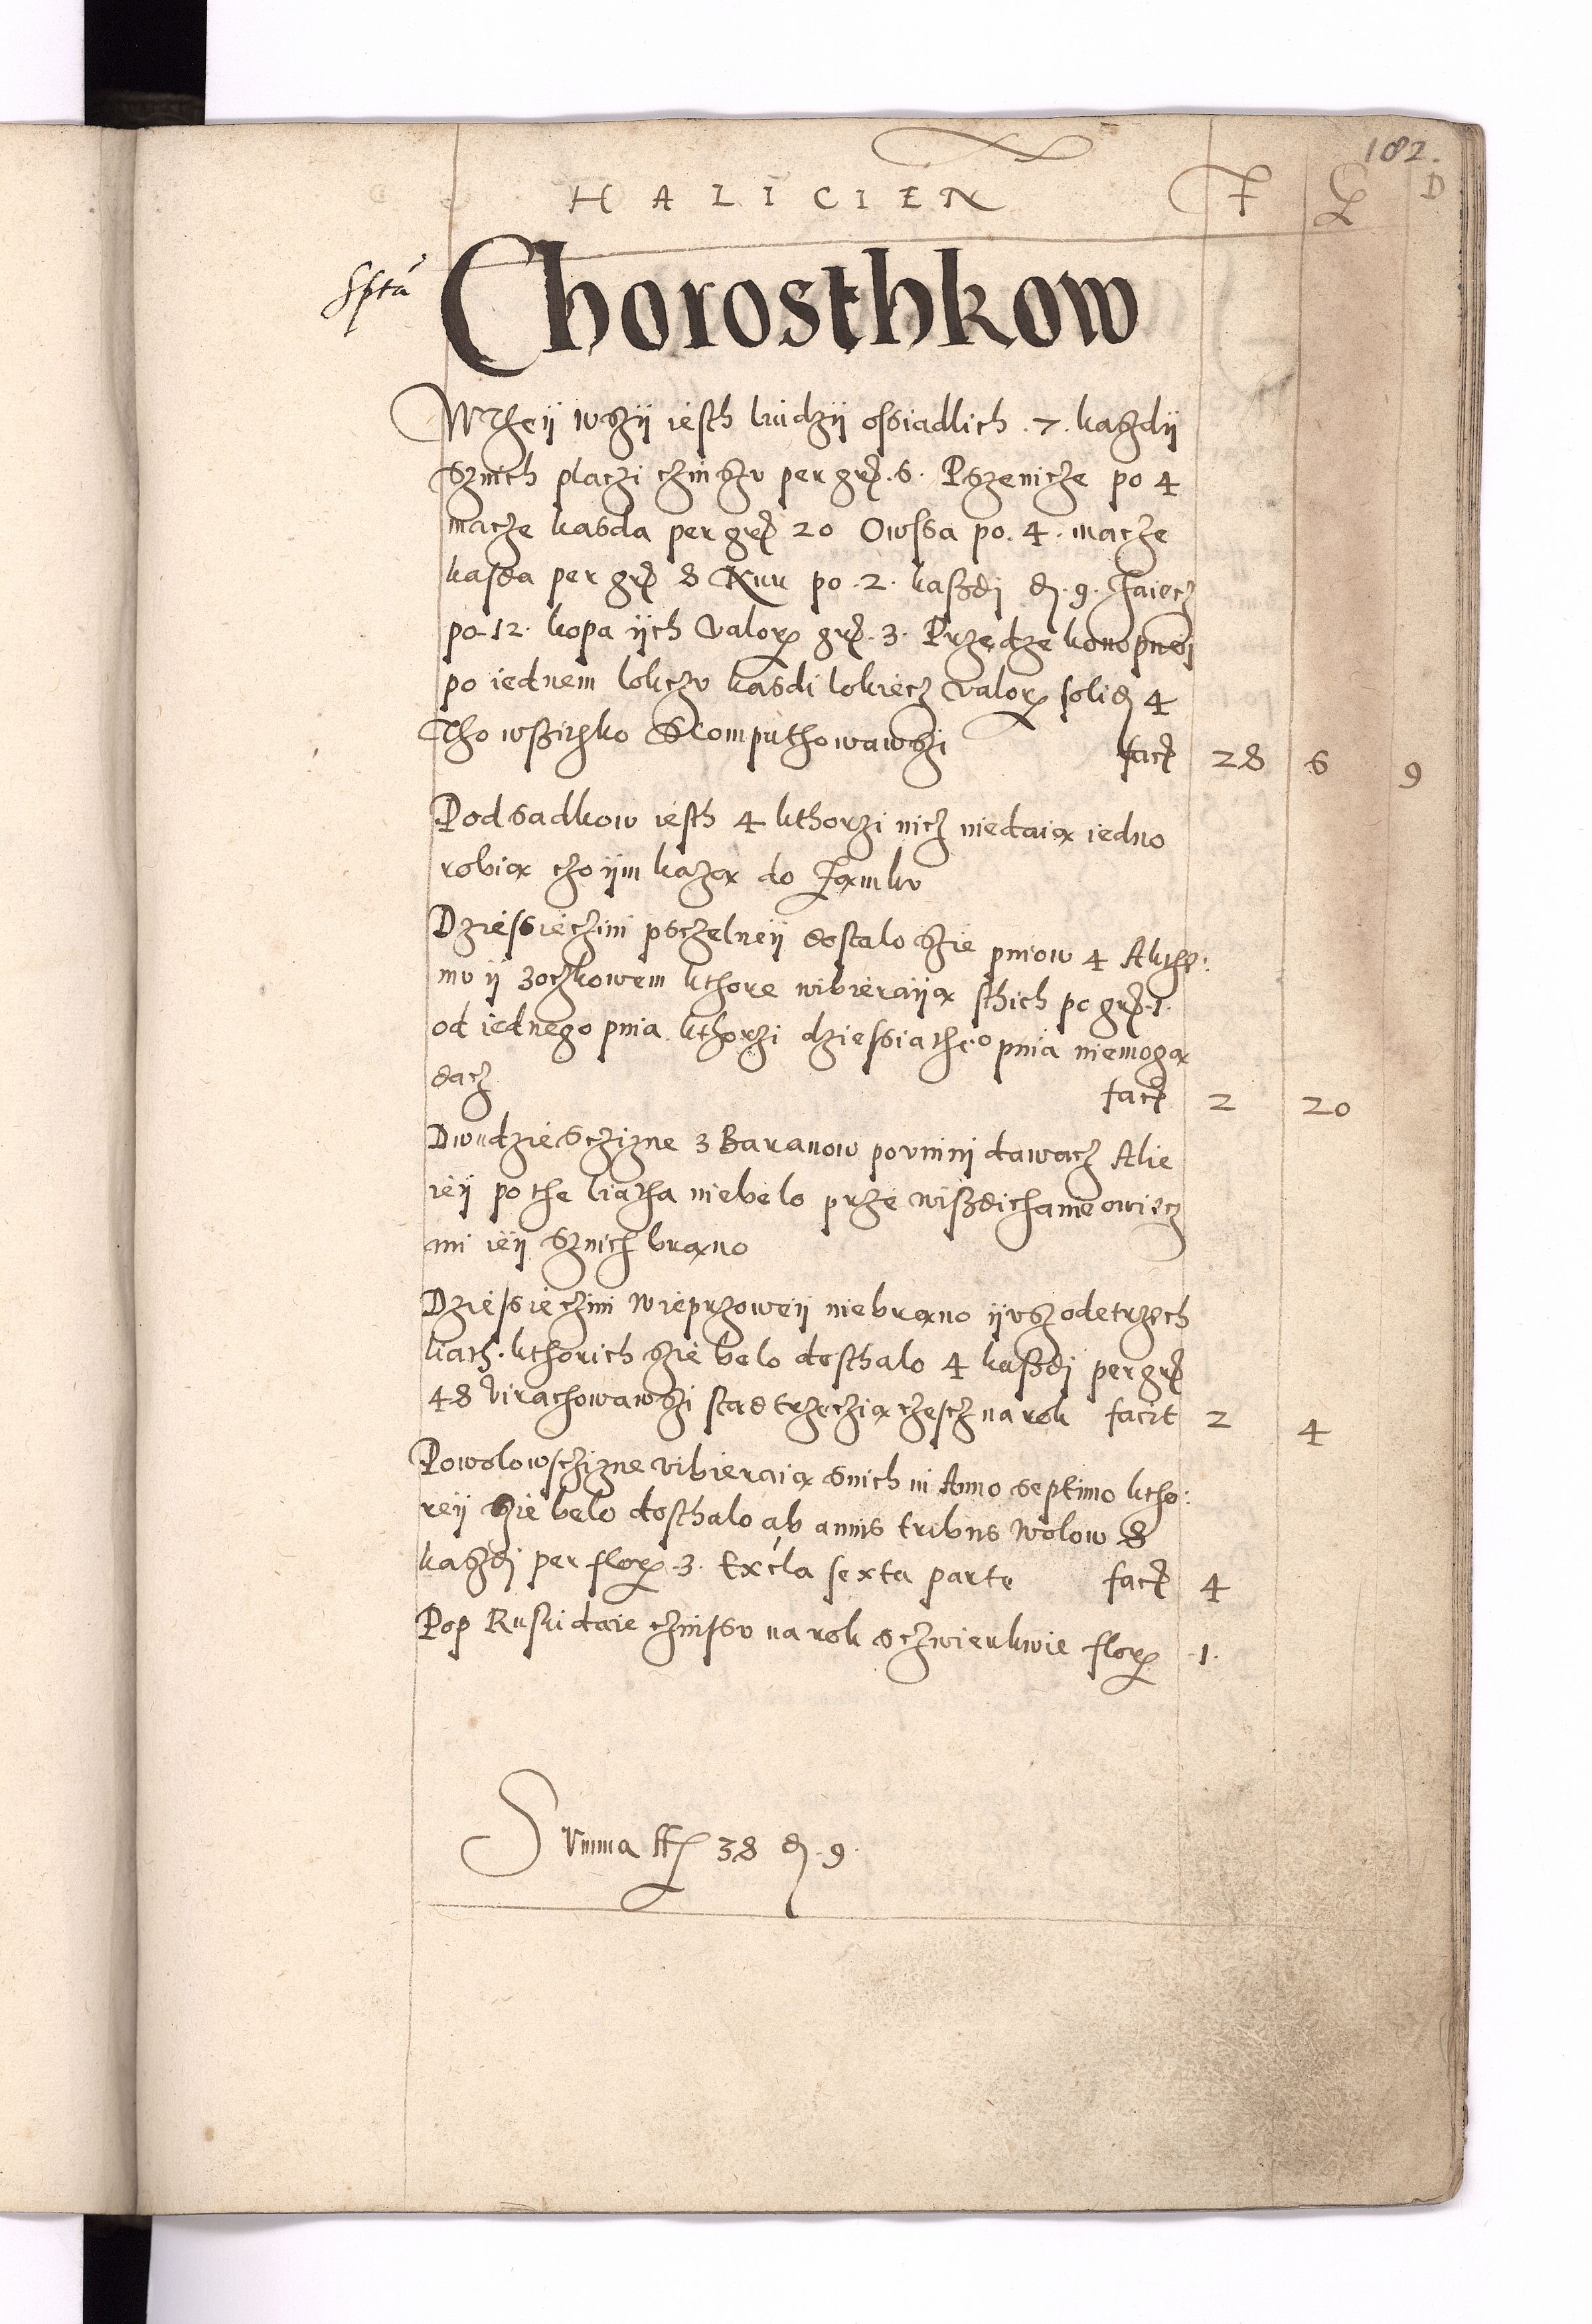 182.
HALICIEN F G D
Sptā Chorosthkow
W They wszÿ iesth ludzÿ ossiadlich . 7 . kaszdÿ
sznich placzi czinszu per gr. 6 . Pszenicze po 4
macze kasda per gr 20 Owssa po . 4 . macze
kasda per gr 8 Kur po . 2 . kaszdi d. 9. Jaiecz
po . 12 . kopa ÿch valor gr. 3 . Przedze konopnei
po iednem lokczu kasdi lokiecz valor solid 4
Tho wszitzko Scomputhowawszi facit 28 6 9
Podsadkow iesth 4 kthorzi nicz niedaią iedno
robią czo ÿm kazą do Zamku
Dziessieczini psczelneÿ dostalo szie pniow 4 Akthe:
mu ÿ zoczkowem kthore wibieraÿą sthich po gr. 1.
od iednego pnia kthorzi dziessiatheo pnia niemogą
dacz facit 2 20
Dwudziesczizne 3 Baranow powinni dawacz Alie
ieÿ po the liatha niebelo prze wiszdichanie owiecz
ani ieÿ sznich brano
Dziessieczini wieprzoweÿ niebrano ÿusz odetrzech
liath . kthorich szie belo dosthalo 4 kaszdi per gr
48 virachowawszi stad trzeczią czescz na rok facit 2 4
Powolowsczizne vibieraią snich in Anno septimo ktho:
reÿ szie belo dosthalo ab annis tribus wolow 8
kaszdi per flor. 3. Excla sexta parte facit 4
Pop Ruski daie czinssu na rok s czwierkwie flor 1.
Summa ff 38 d. 9.